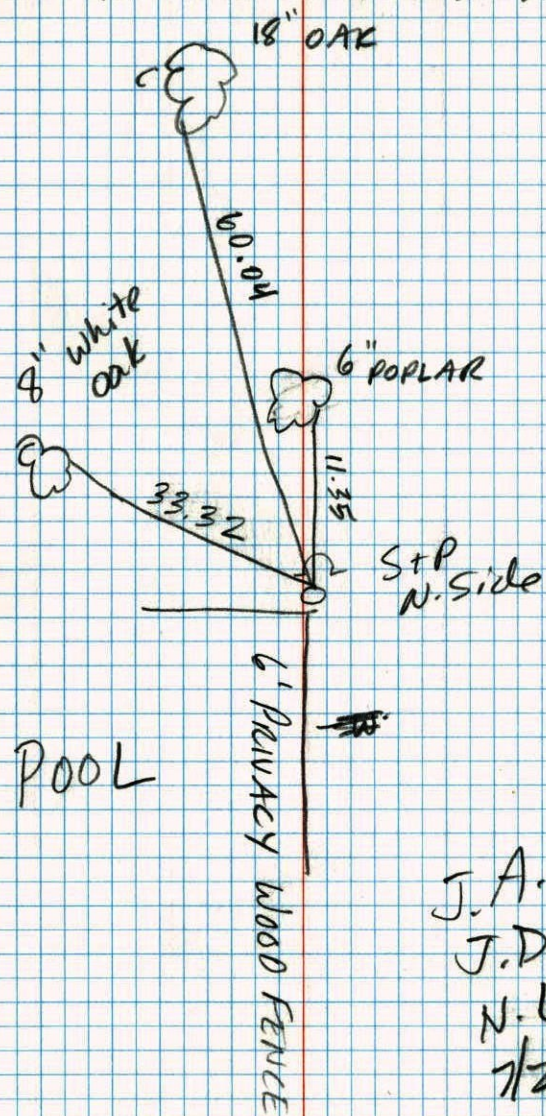 18" OAK
60.04
8" white
oak
6" POPLAR
11.35
33.32
S+P
N. Side
6' PRIVACY WOOD FENCE
POOL
J.A.
J.D
N.
7/2